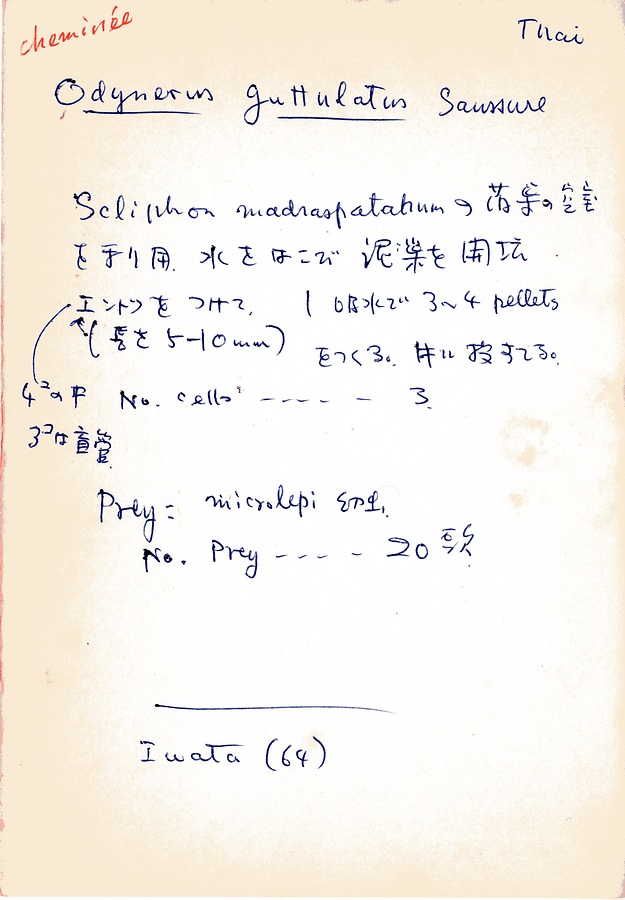 cheminée
Thai
Odynerus guttulatus Saussure
Sceliphon madraspatanumの落巣の空室
を利用. 水をはこび 泥巣を開坑
エントツをつけて. 1 吸水で 3~4 pellets
(長さ 5-10mm) をつくる. 共に捨てる。
4コの中 No. cells ----- 3.
3コは盲管
Prey = microlepi 幼虫.
No. Prey ---- 20頭
Iwata (64)